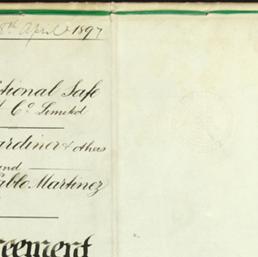 8th April 1897
tional Safe
t Co Limited
ardiner & others
and
ablo Martinez
reement